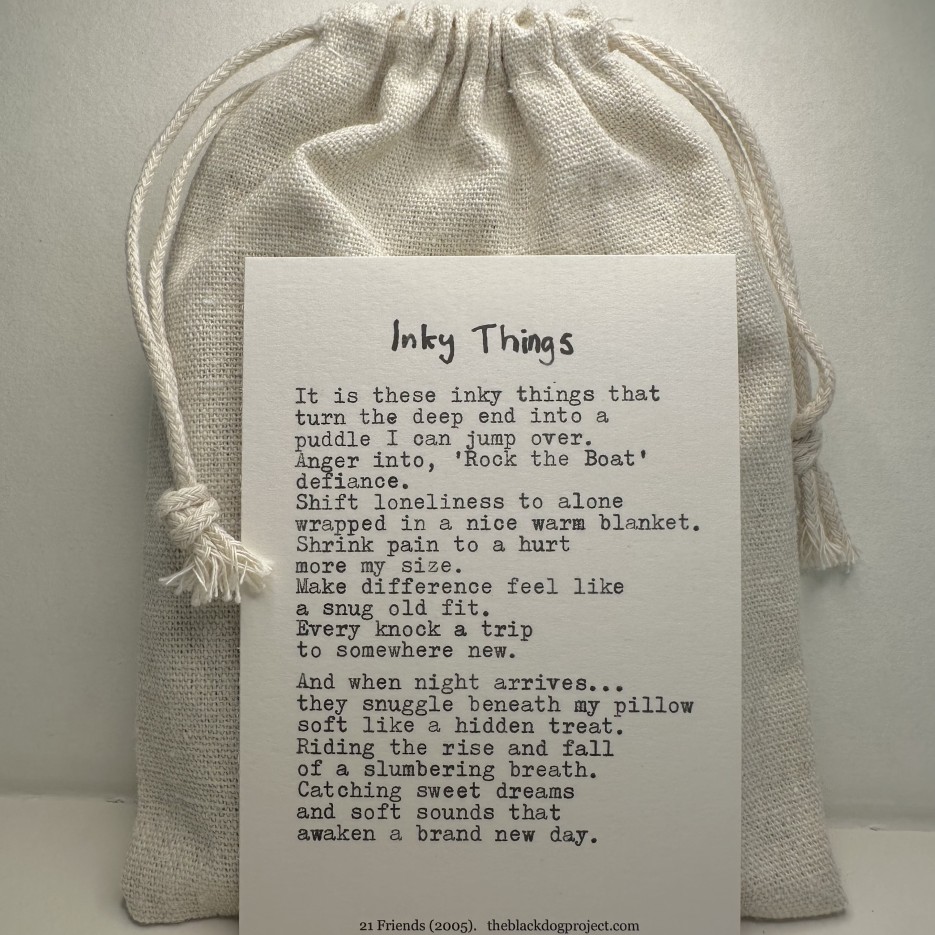 Inky Things
It is these inky things that
turn the deep end into a
puddle I can jump over.
Anger into, 'Rock the Boat'
defiance.
Shift loneliness to alone
wrapped in a nice warm blanket.
Shrink pain to a hurt
more my size.
Make difference feel like
a snug old fit.
Every knock a trip
to somewhere new.
And when night arrives...
they snuggle beneath my pillow
soft like a hidden treat.
Riding the rise and fall
of a slumbering breath.
Catching sweet dreams
and soft sounds that
awaken a brand new day.
21 Friends (2005). theblackdogproject.com